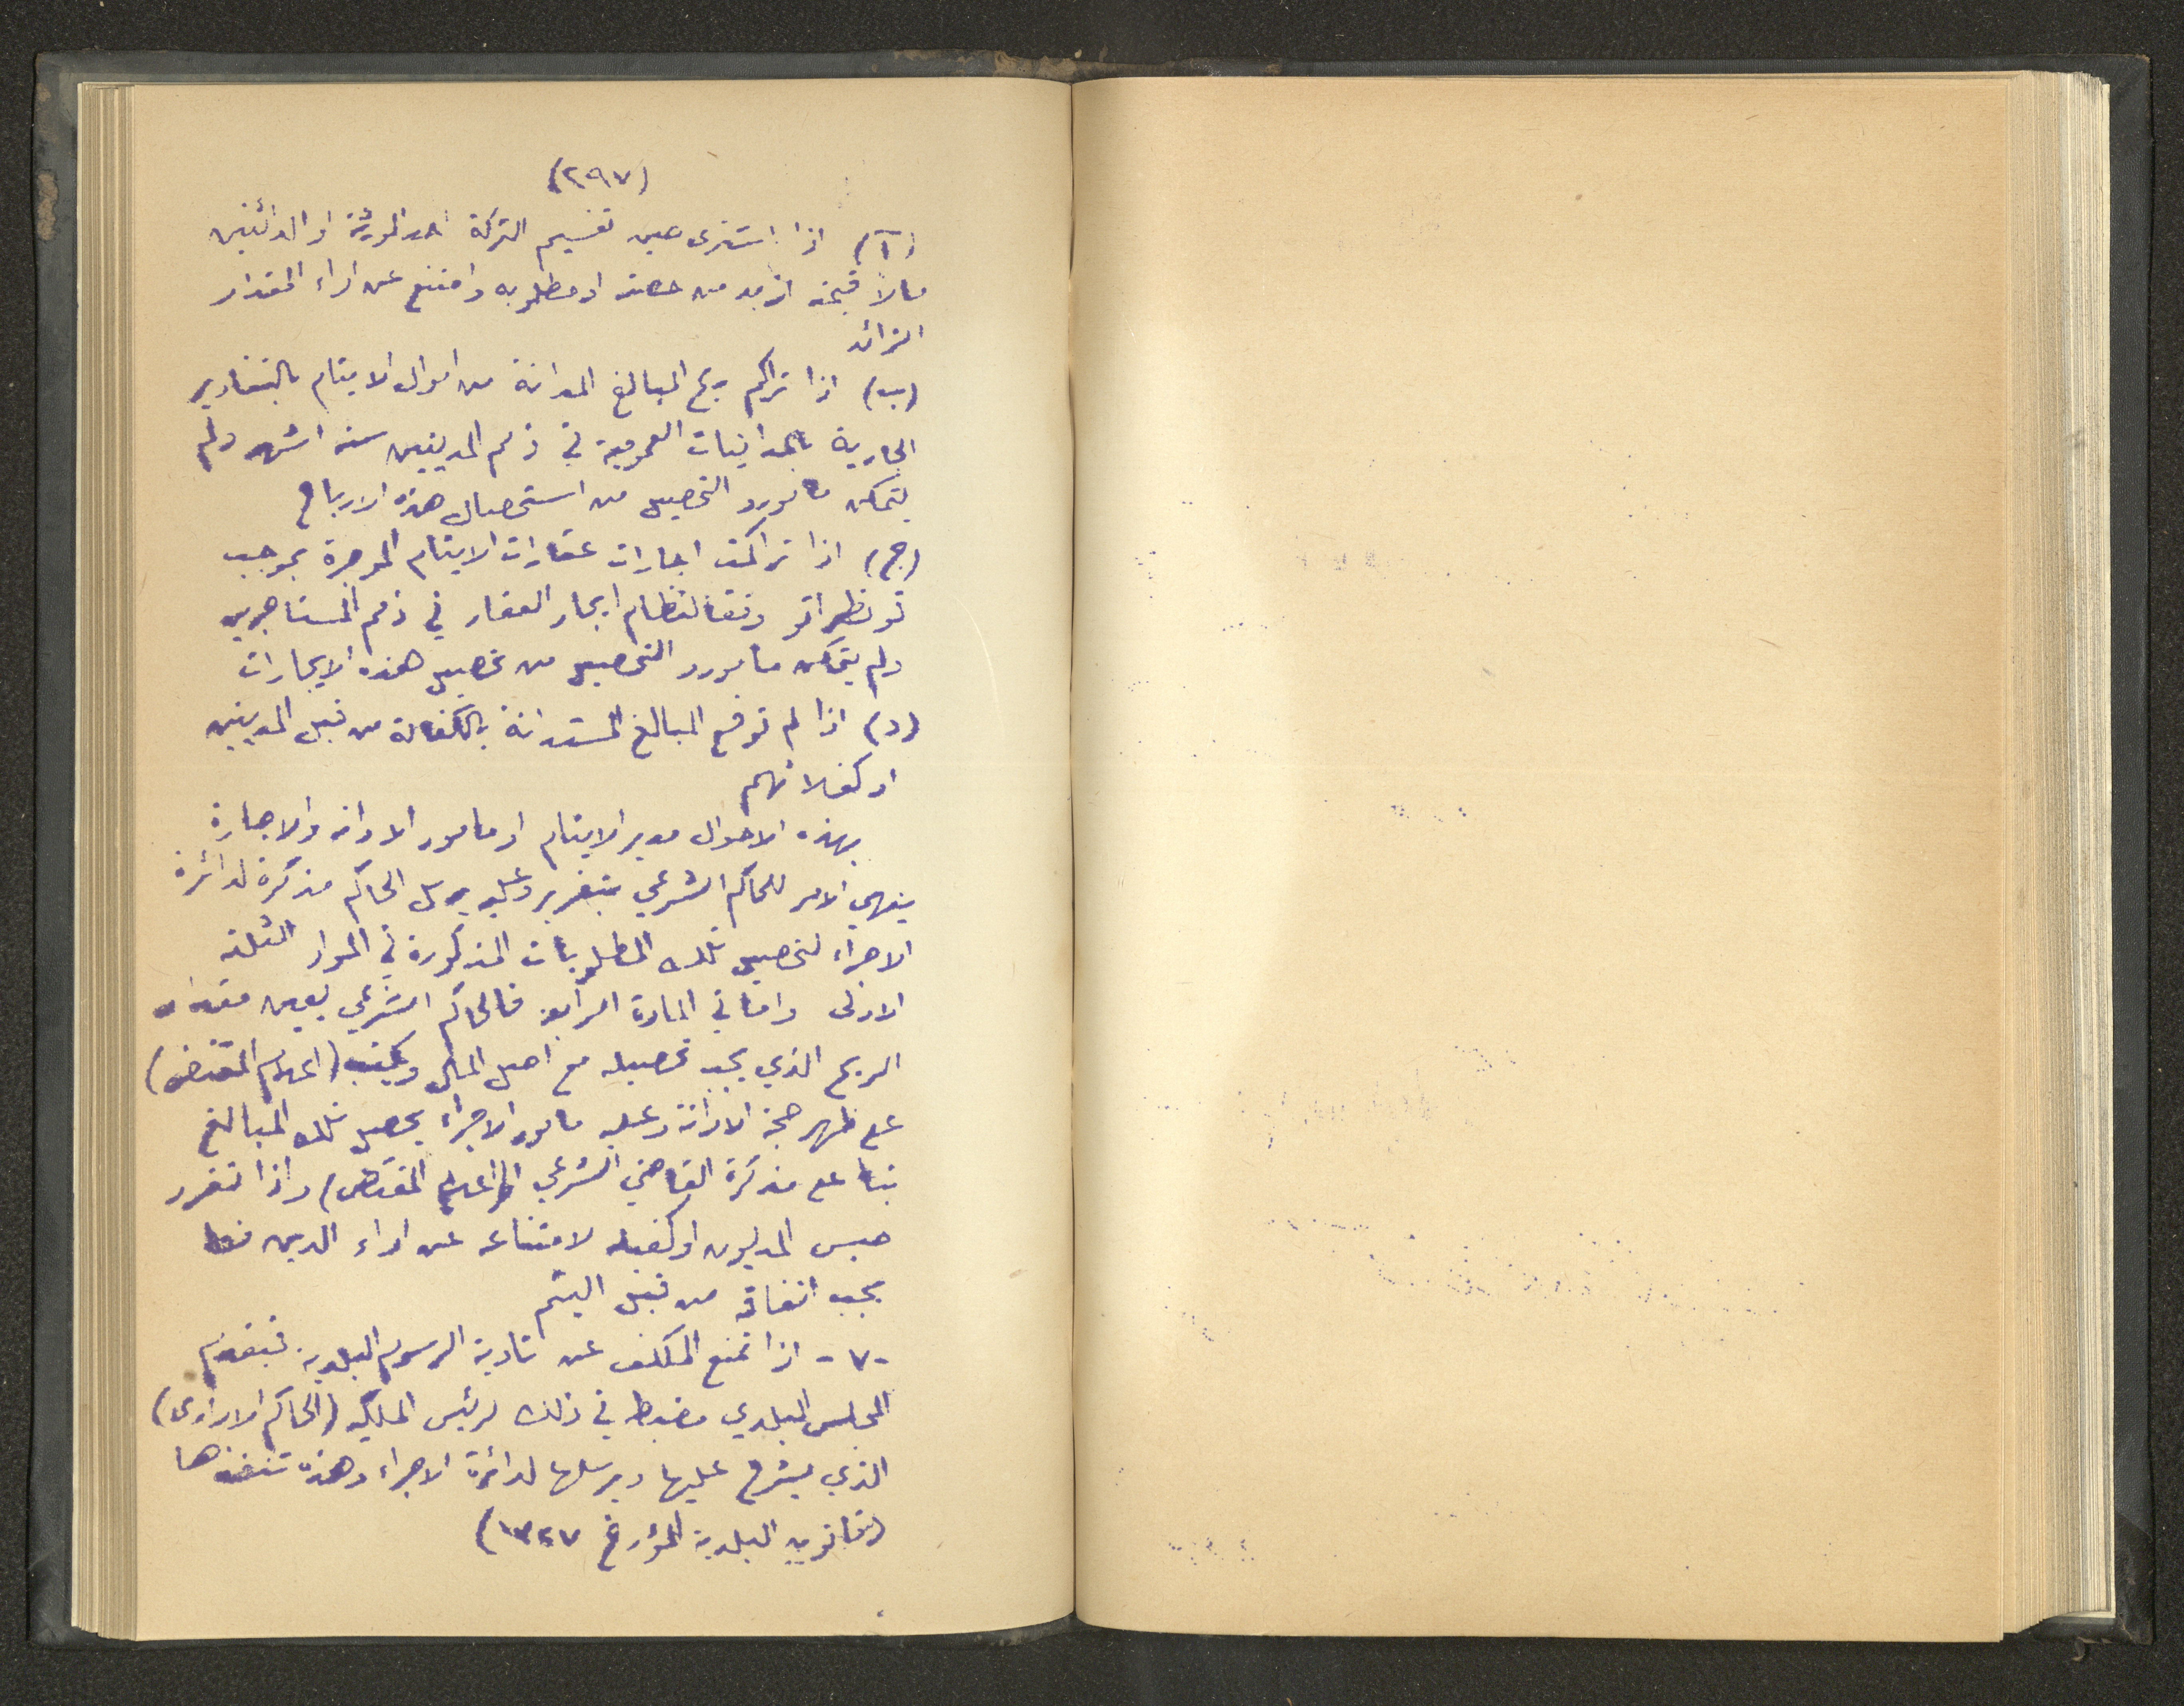 (٢٩٧)
(آ) اذا اشترى حين تقسيم التركة احد الورثة او الدائنين
مالاً قيمته ازيد من حصته او مطلوبه وامتنع عن اداء المقدار
الزائد
(ب) اذا تراكم ربح المبالغ المدانة من اموال الايتام بالتقادير
الجارية بالمداينات العمومية في ذمم المديونين ستة اشهر ولم
يتمكن مامورو التحصيل من استحصال هذه الارباح
(ج) اذا تراكمت ايجارات عقارات الايتام الموجرة بموجب
قونطراتو وفقا لنظام ايجار العقار في ذمم المستاجرين
ولم يتمكن مامورو التحصيل من تحصيل هذه الايجارات
(د) اذا لم توف المبالغ المستدانة بالكفالة من قبل المديونين
او كفلائهم
بهذه الاحوال مدير الايتام او مامور الادانه والاجارة
ينهي الامر للحاكم الشرعي بتقرير وعليه يرسل الحاكم مذكرة لدائرة
الاجراء لتحصيل تلك المطلوبات المذكورة في المواد الثلثه
الاولى واما في المادة الرابعة فالحاكم الشرعي يعين مقدار
الربح الذي يجب تحصيله مع اصل المال ويكتب (اعلام المقتضى)
على ظهر حجة الادانة وعليه مامور الاجراء يحصل تلك المبالغ
بناء على مذكرة القاضي الشرعي (اعلام المقتضى) واذا تقرر
حبس المديون او كفيله لامتناعه عن اداء الدين فلا
يجب انفاقه من قبل اليتيم
-٧- اذا تمنع المكلف عن تادية الرسوم البلدية فيقدم
المجلس البلدي مضبطة في ذلك لرئيس الملكية (الحاكم الاداري)
الذي يشرح عليها ويرسلها لدائرة الاجراء وهذه تنفذها
(قانون البلدية المؤرخ ١٣٢٧)